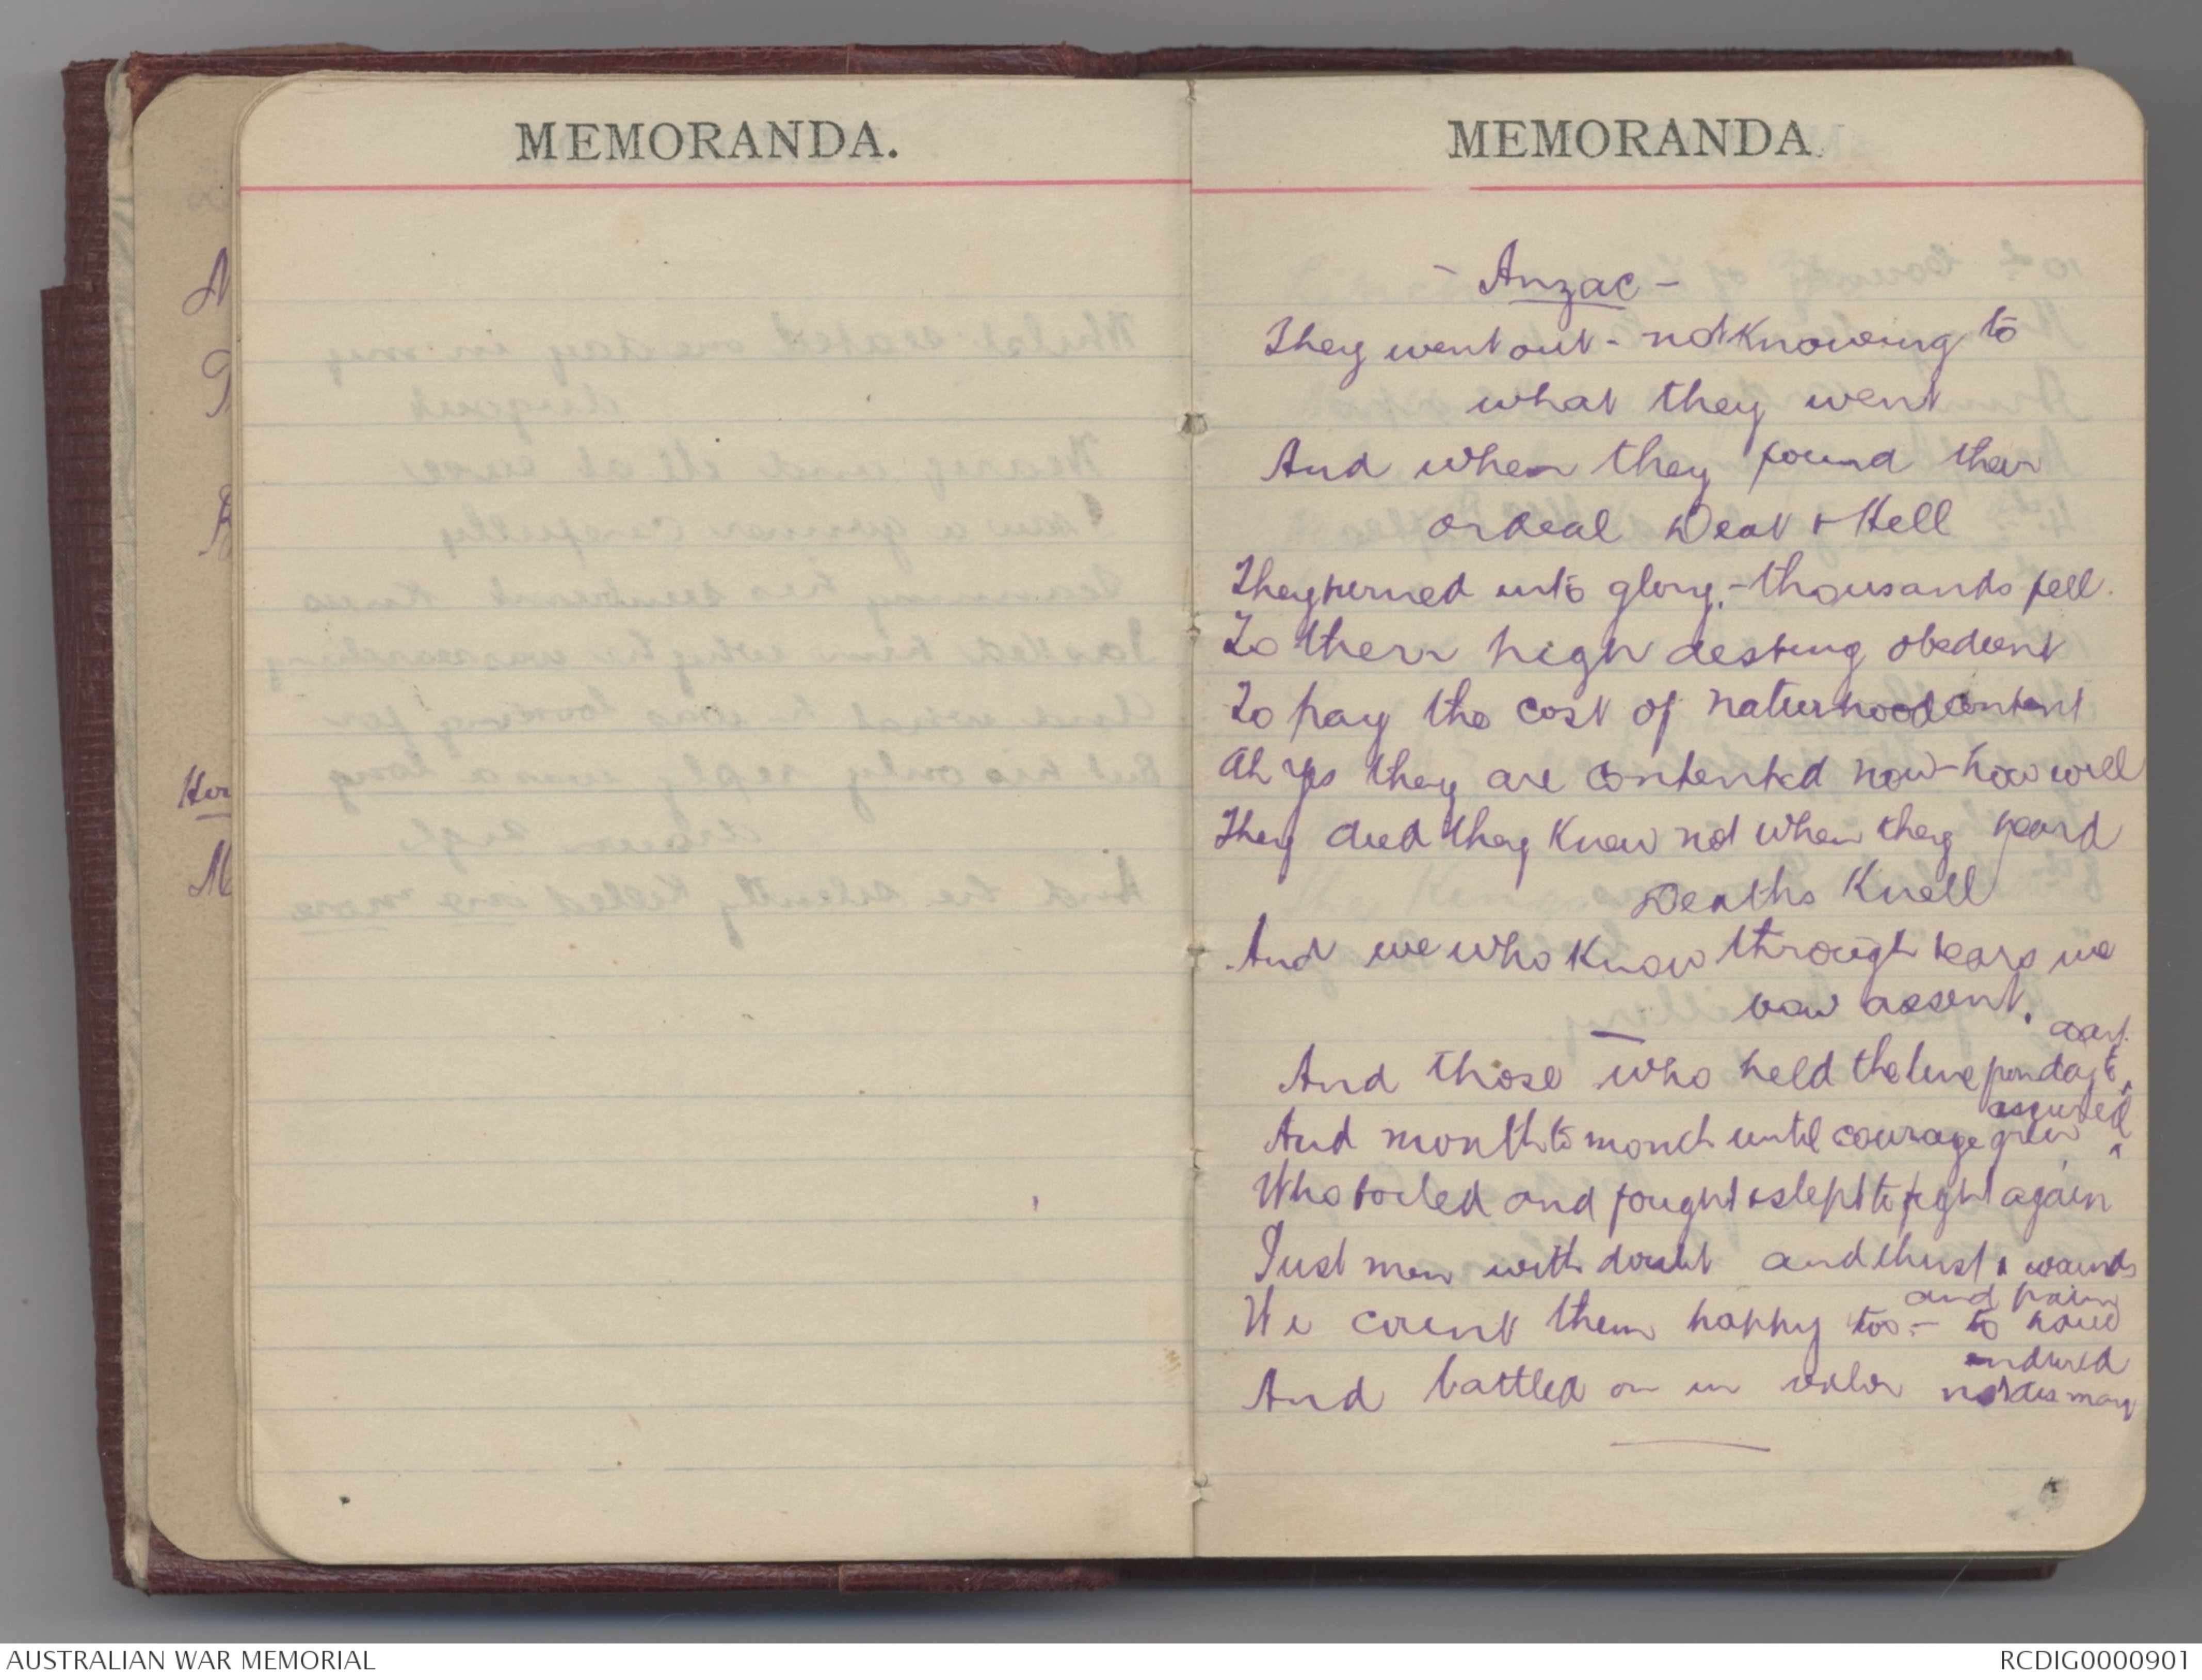 MEMORANDA.
MEMORANDA.
- Anzac -
They went out - not knowing to
what they went
And when they found their
ordeal Deat & Hell
They turned unto glory, - thousands fell.
To their high destiny obedient
To pay the cost of naturhood content
Ah yes they are contented now - how well
They died they knew not when they heard
Deaths Knell
And we who know through tears we
vow assent.
And those who held the line from day to
day
And month to month until courage grew
assured
Who toiled and fought & slept to fight again
Just men with doubt and thirst & wounds
and pain
We count them happy too - to have
endured
And battled on in valor not dismay
AUSTRALIAN WAR MEMORIAL
RCDIG0000901